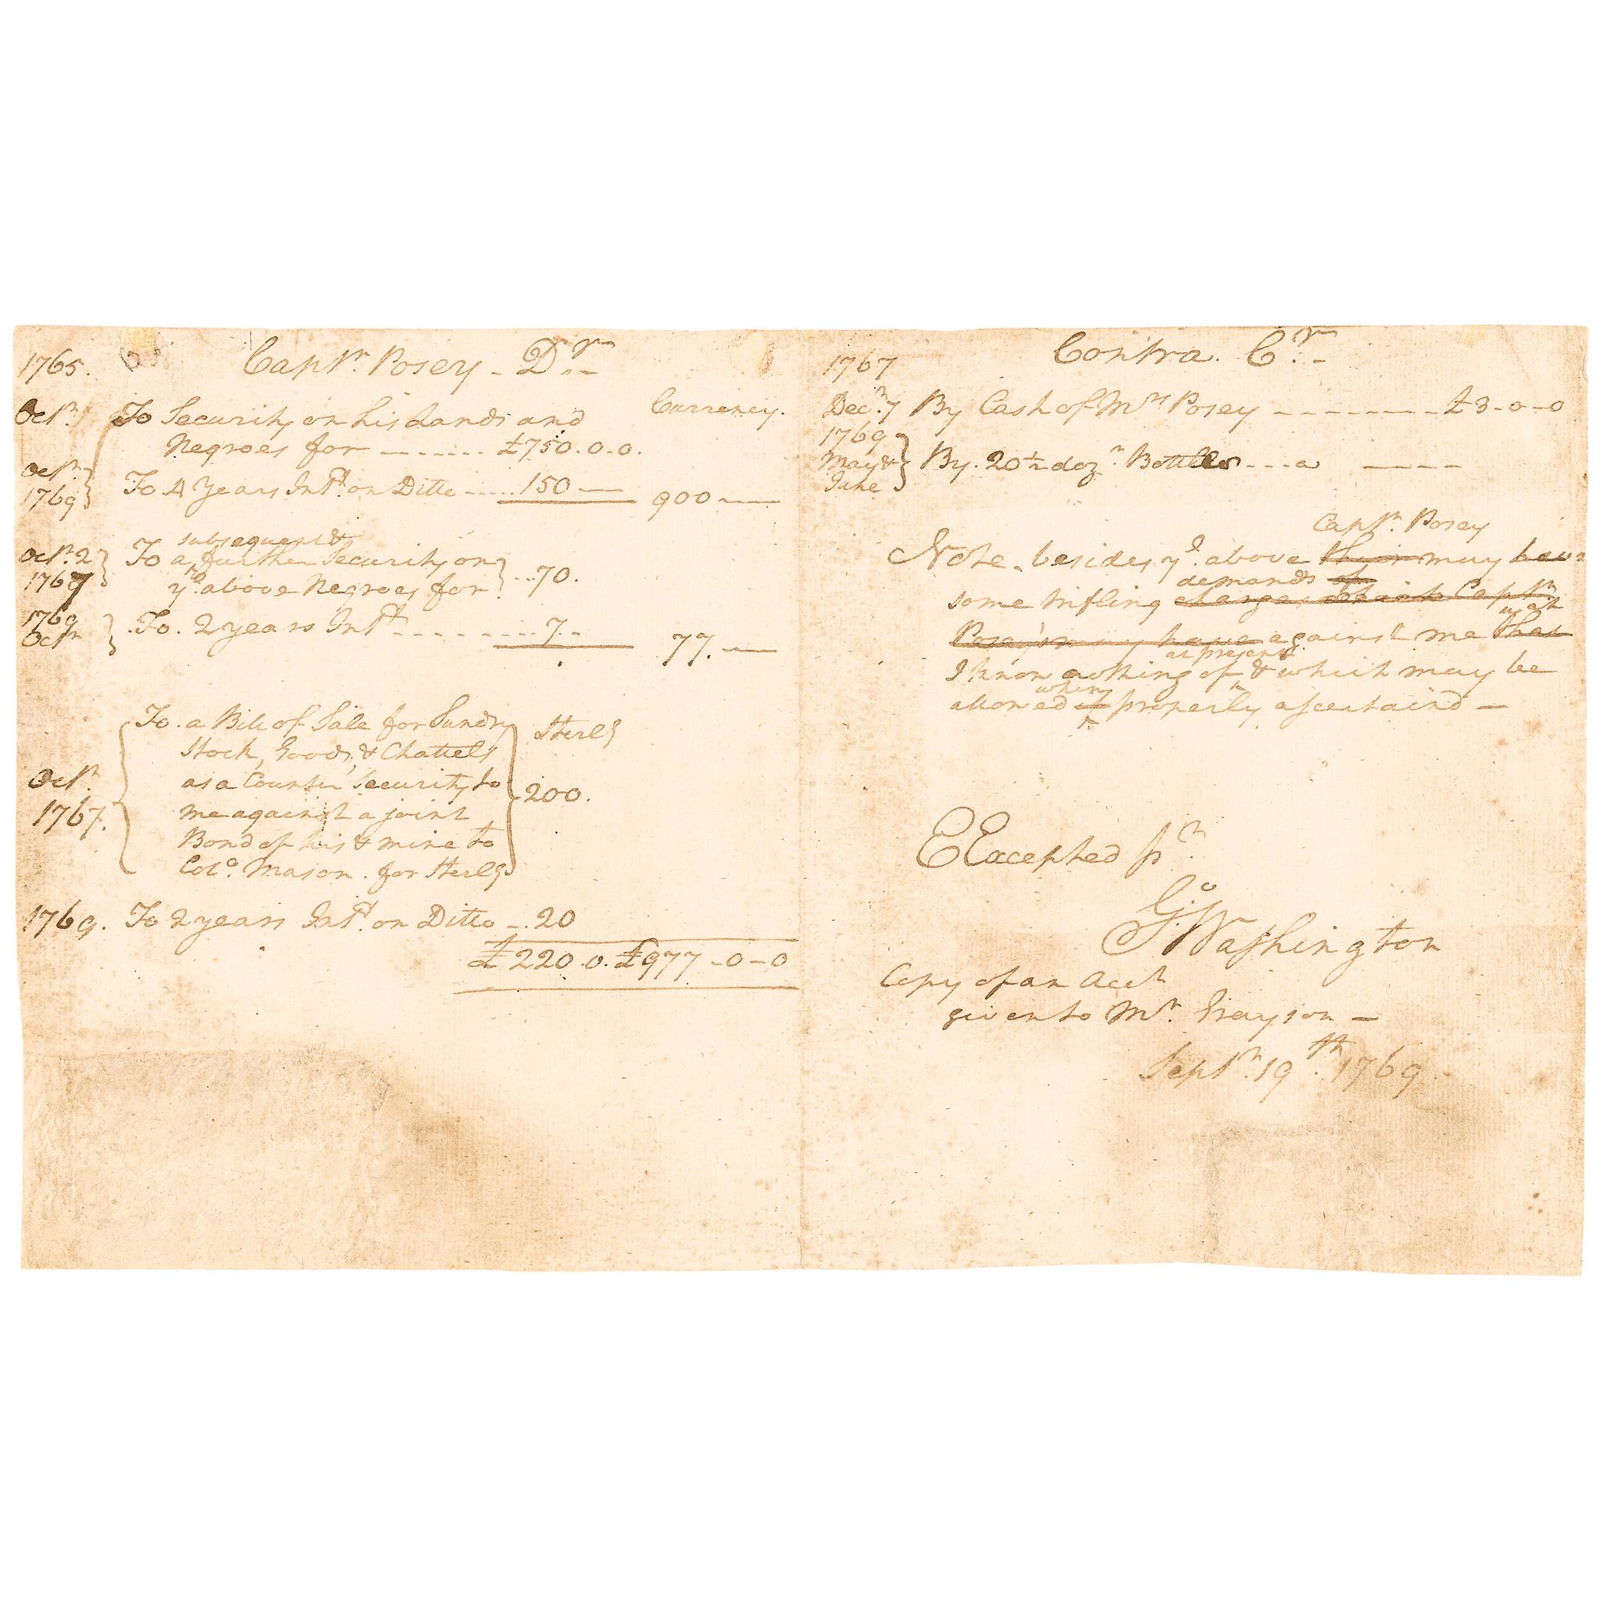 1765. Capt.n Posey - D.r -
Currency.
Oct.r To Security on his Lands and
Negroes for ------- £750.0.0.
Oct.r
1769 To 4 Years Int.t on Ditto ----- 150 — 900 —
subsequent &
Oct.r 2 To a further Security on
1767 y.e above Negroes for ... 70.
1769
Oct.r To. 2 years Int.t -------- 7 -- 77. —
To. a Bill of Sale for Sundry Sterlg
Stock, Goods, & Chattels
Oct.r as a Counter Security to 200.
1767. me against a joint
Bond of his & mine to
Col.o Mason. for Sterlg
1769. To 2 years Int.t on Ditto -. 20
£220.0. £977-0-0
1767 Contra. C.r -
Dec.r 7 By Cash of Mrs Posey --------- £3-0-0
1769
May & By. 20½ doz.n Bottles --- a ----
June
Capt.n Posey
Note. besides y.e above may have
demands
some trifling charges which Capt.n
w.at
Posey may have against me that
at present
I know nothing of, & which may be
when
allowed if properly ascertaind —
E Excepted p.r
G.o Washington
Copy of an Acct
given to Mr. Grayson —
Sept.r 19.th 1769